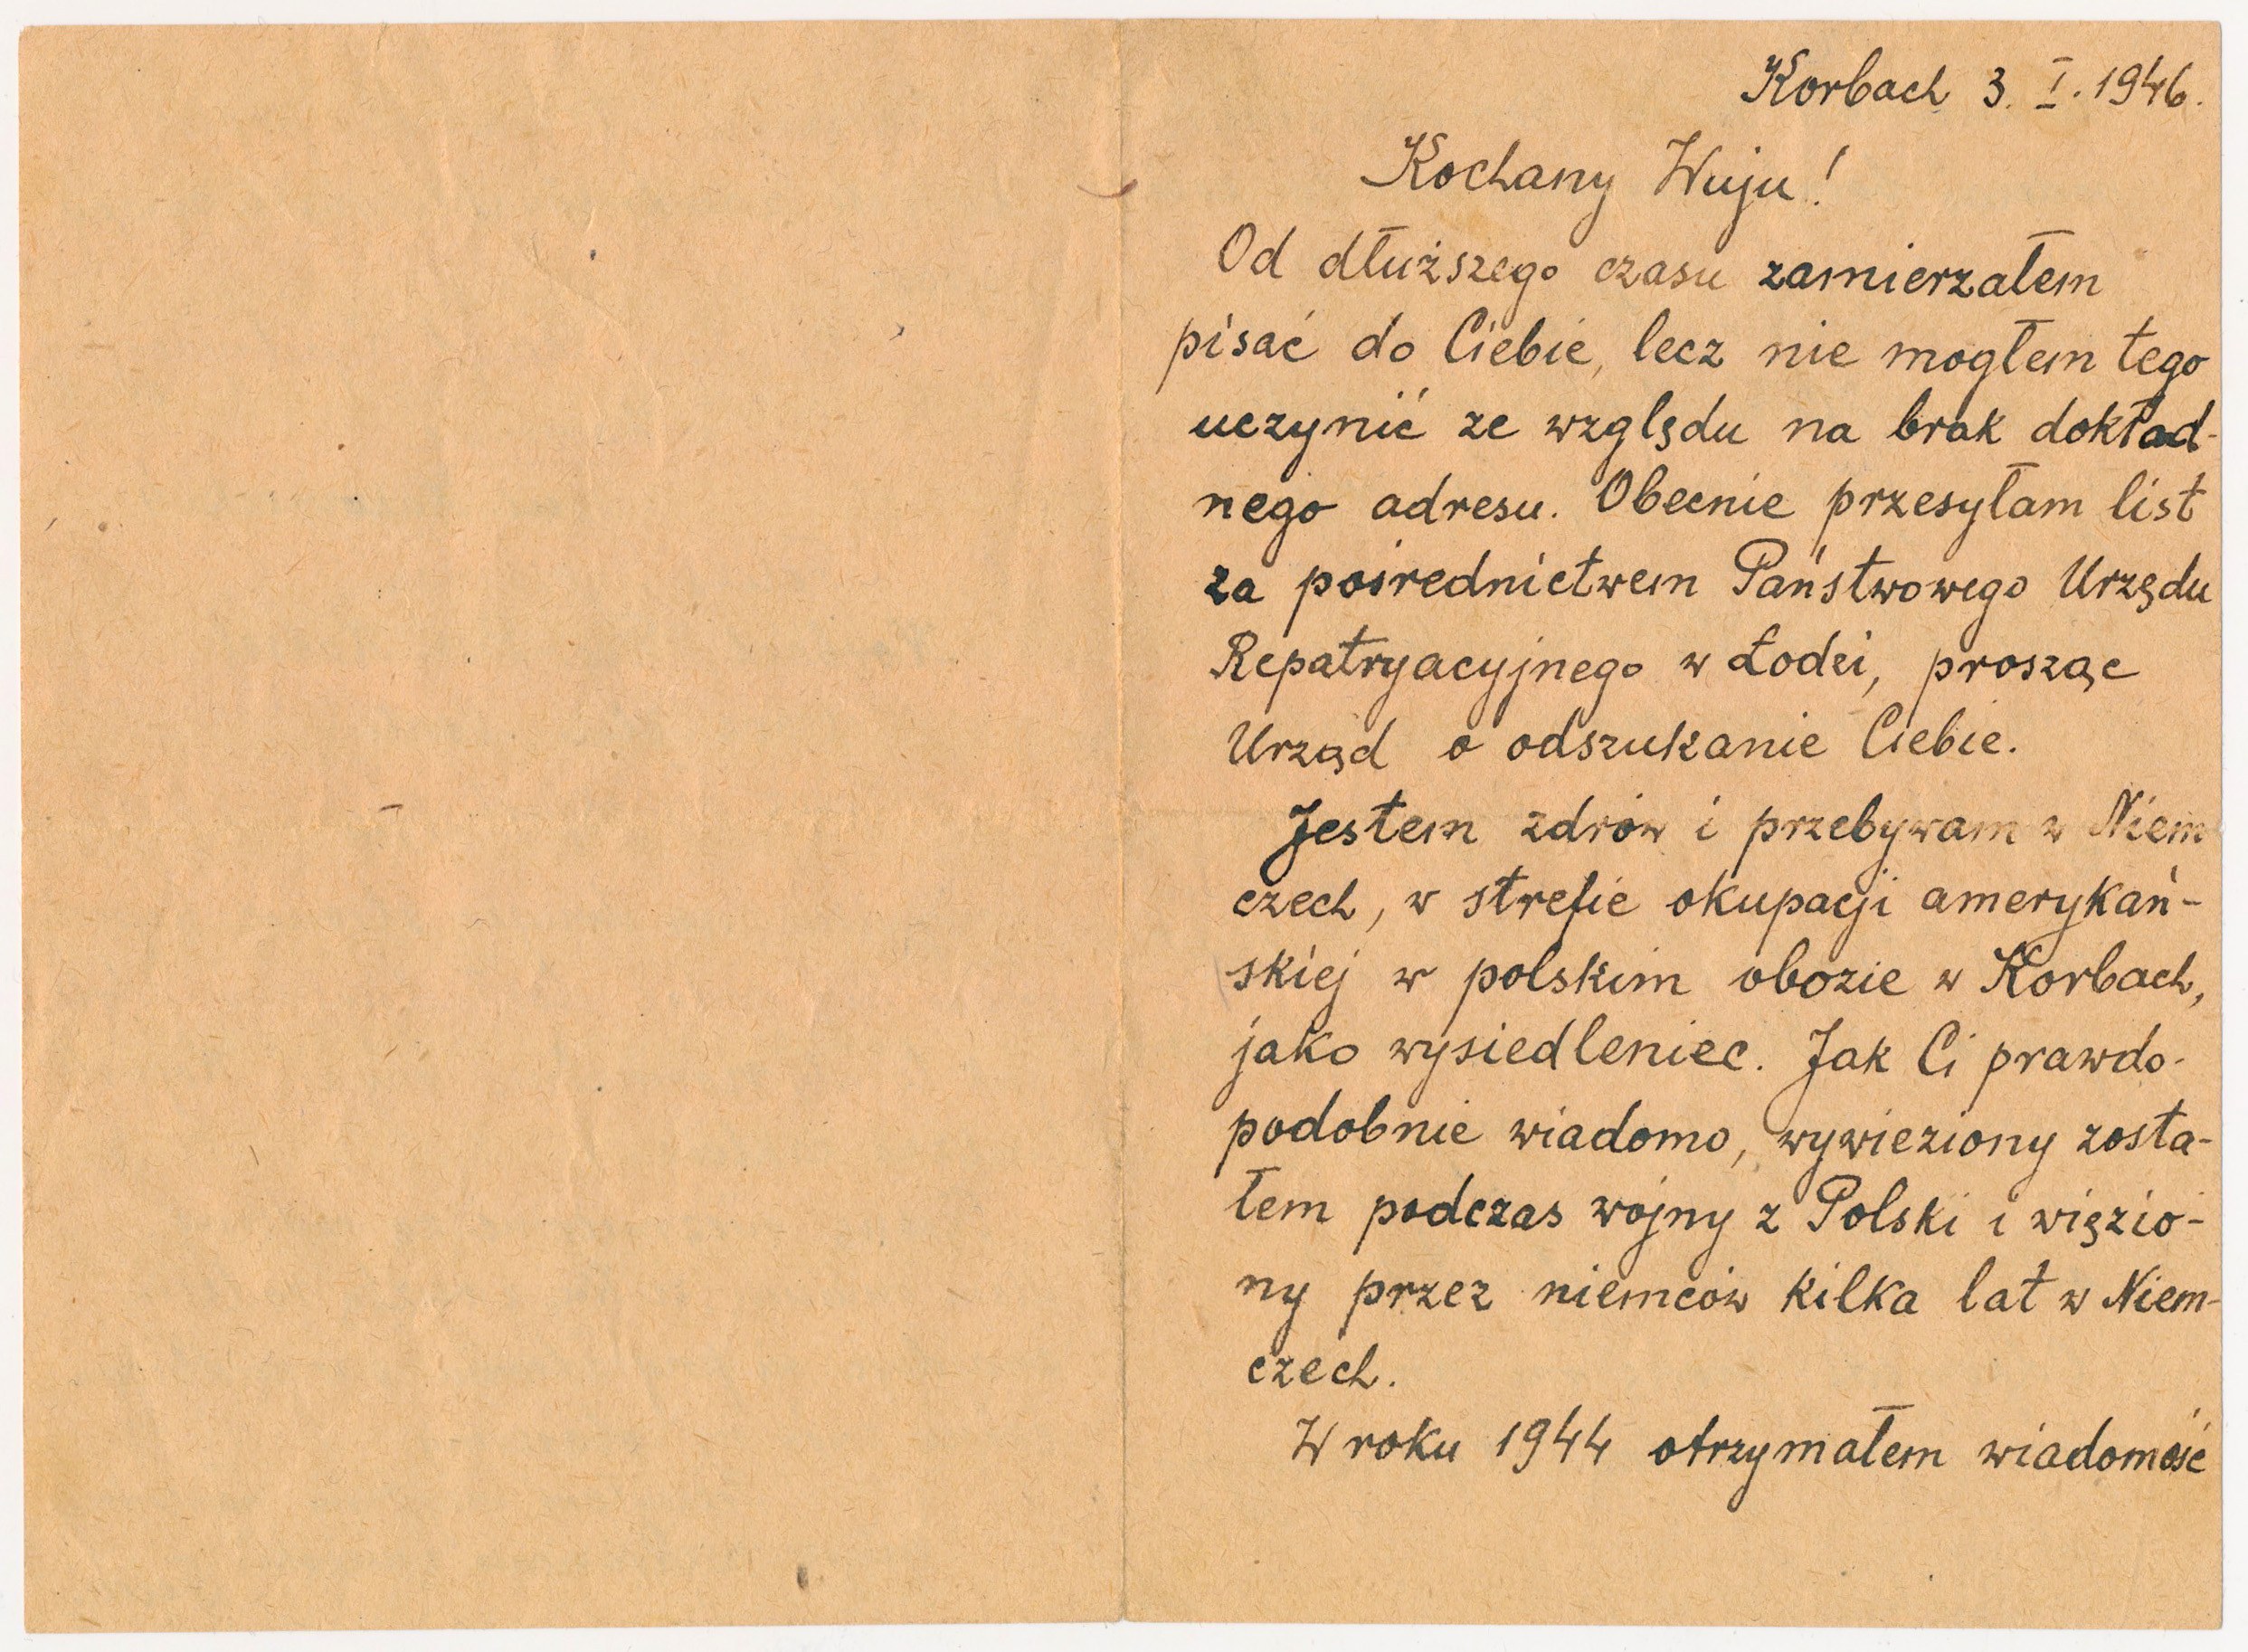 Korbach 3. I. 1946.
Kochany Wuju!
Od dłuższego czasu zamierzałem
pisać do Ciebie, lecz nie mogłem tego
uczynić ze względu na brak dokład-
nego adresu. Obecnie przesyłam list
za pośrednictwem Państwowego Urzędu
Repatryacyjnego w Łodzi, prosząc
Urząd o odszukanie Ciebie.
Jestem zdrów i przebywam w Niem
czech, w strefie okupacji amerykań-
skiej w polskim obozie w Korbach,
jako wysiedleniec. Jak Ci prawdo-
podobnie wiadomo, wywieziony zosta-
łem podczas wojny z Polski i więzio-
ny przez niemców kilka lat w Niem-
czech.
W roku 1944 otrzymałem wiadomość